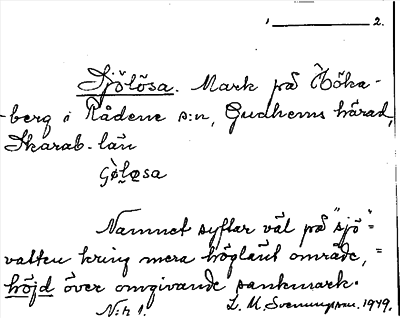 1 2.
Sjölösa. Mark på Höka-
-berg i Rådene s:n, Gudhems härad,
Skarab-län
Namnet syftar väl på "sjö"=
vatten kring mera högländt område, =
höjd över omgivande sankmark.
N:r 1. L. M. Svenungsson. 1949.